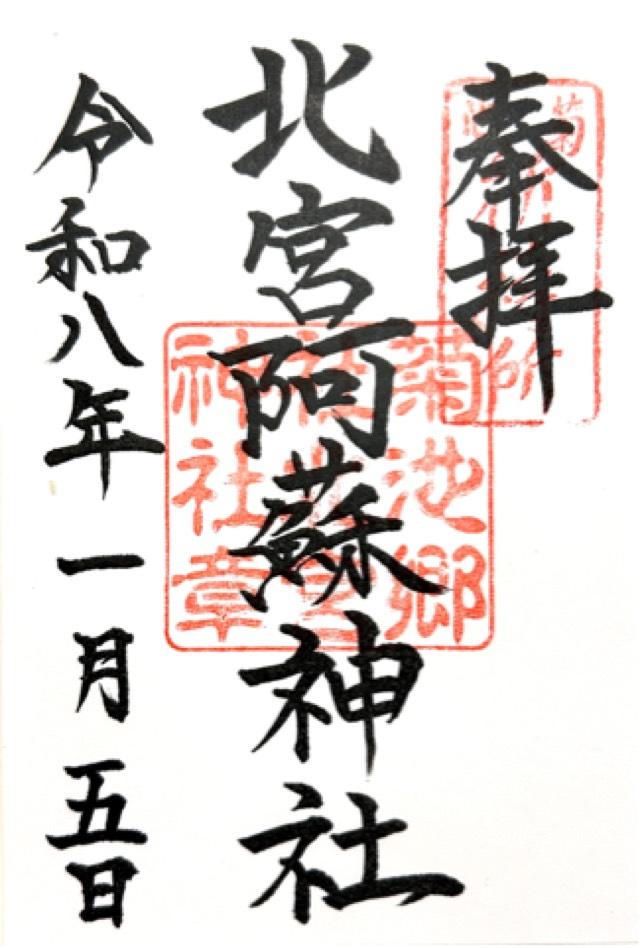 奉拝
北宮阿蘇神社
令和八年一月五日
菊池郷
神社章